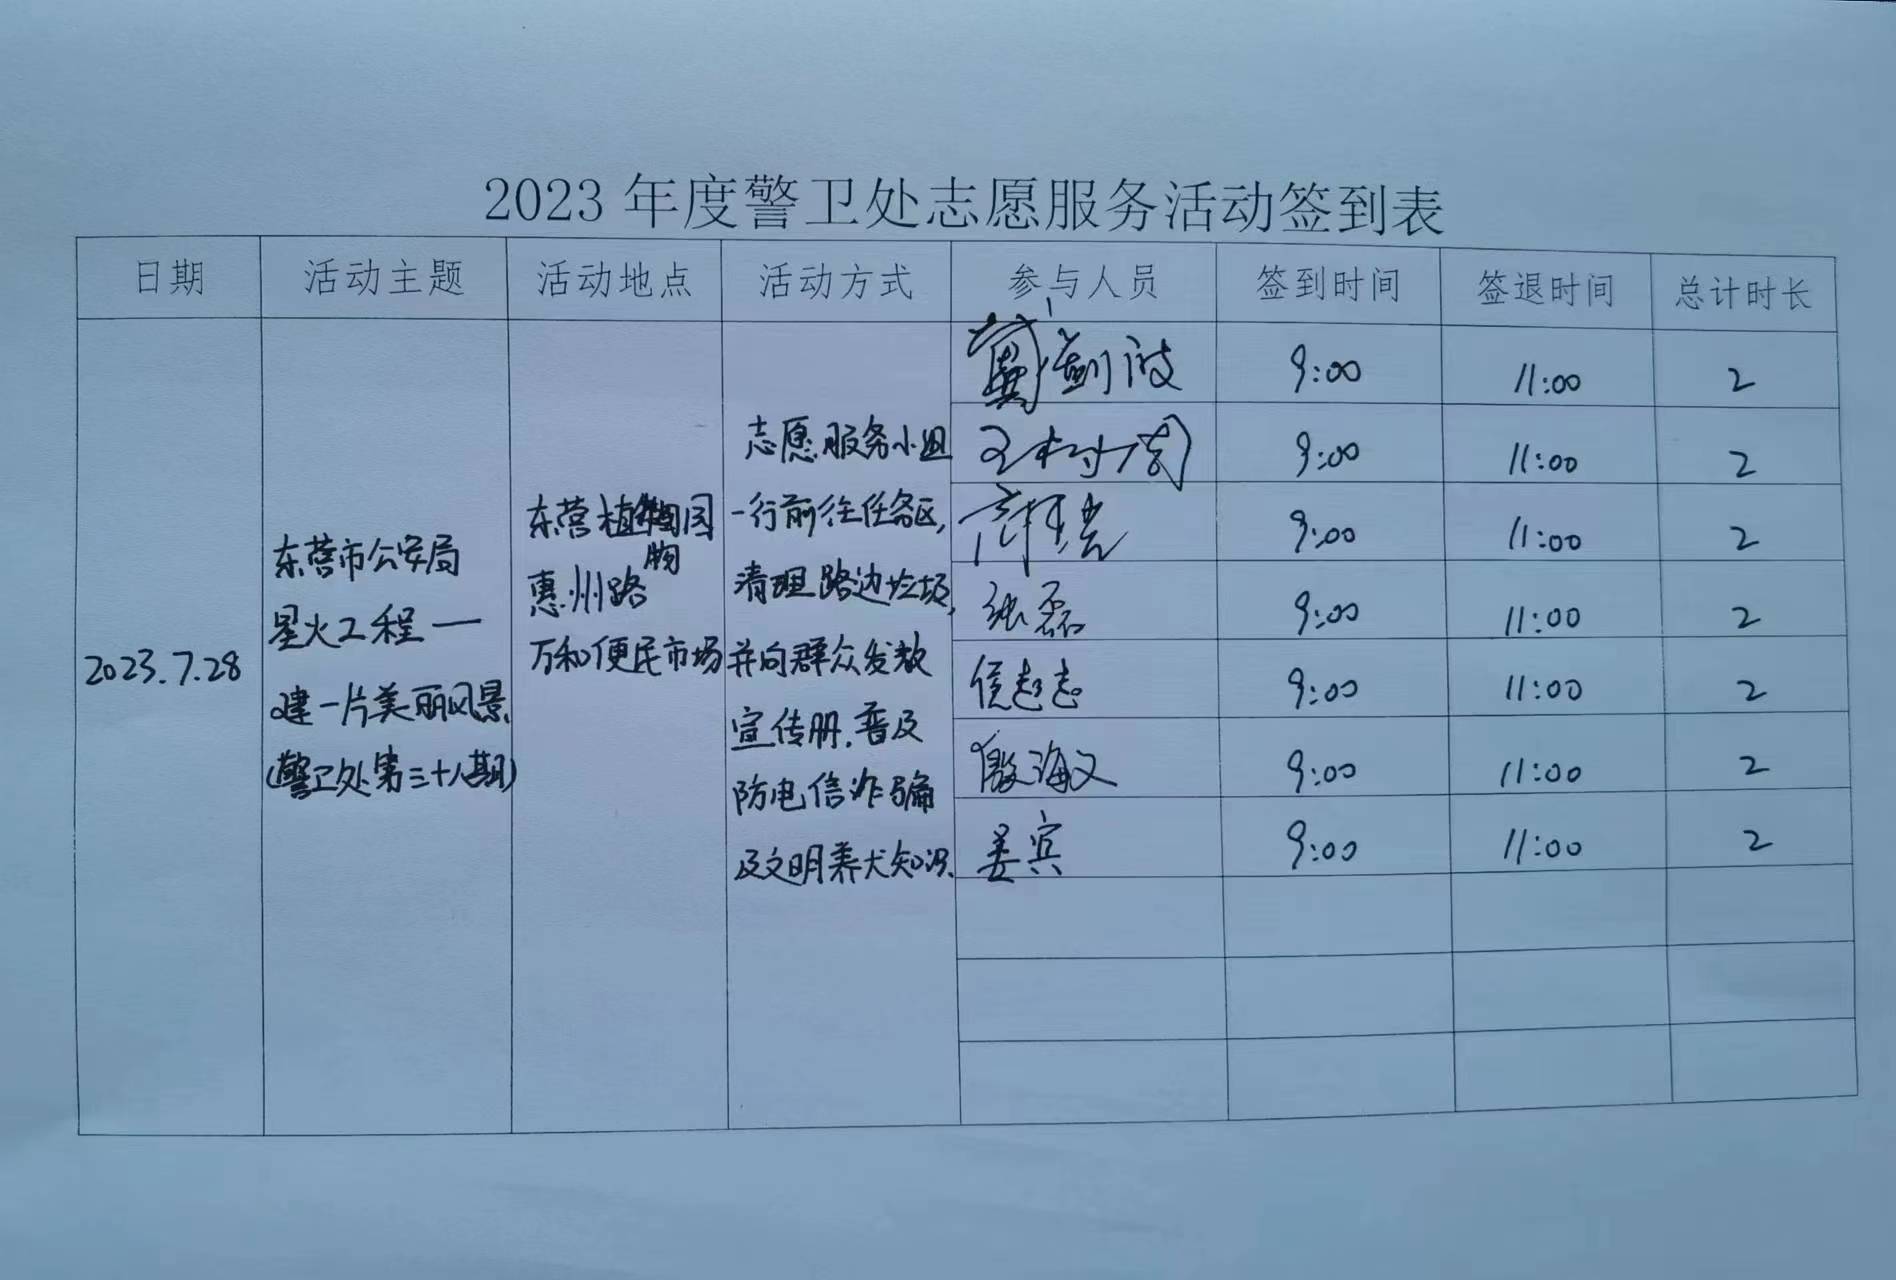 2023年度警卫处志愿服务活动签到表
日期 活动主题 活动地点 活动方式 参与人员 签到时间 签退时间 总计时长
2023.7.28
东营市公安局
星火工程一
建一片美丽风景
(警卫处第三十八期)
东营植物园
惠州路
万和便民市场
志愿服务小组
一行前往任务区,
清理路边垃圾,
并向群众发放
宣传册.普及
防电信诈骗
及文明养犬知识.
9:00 11:00 2
9:00 11:00 2
9:00 11:00 2
张磊 9:00 11:00 2
9:00 11:00 2
9:00 11:00 2
姜宾 9:00 11:00 2